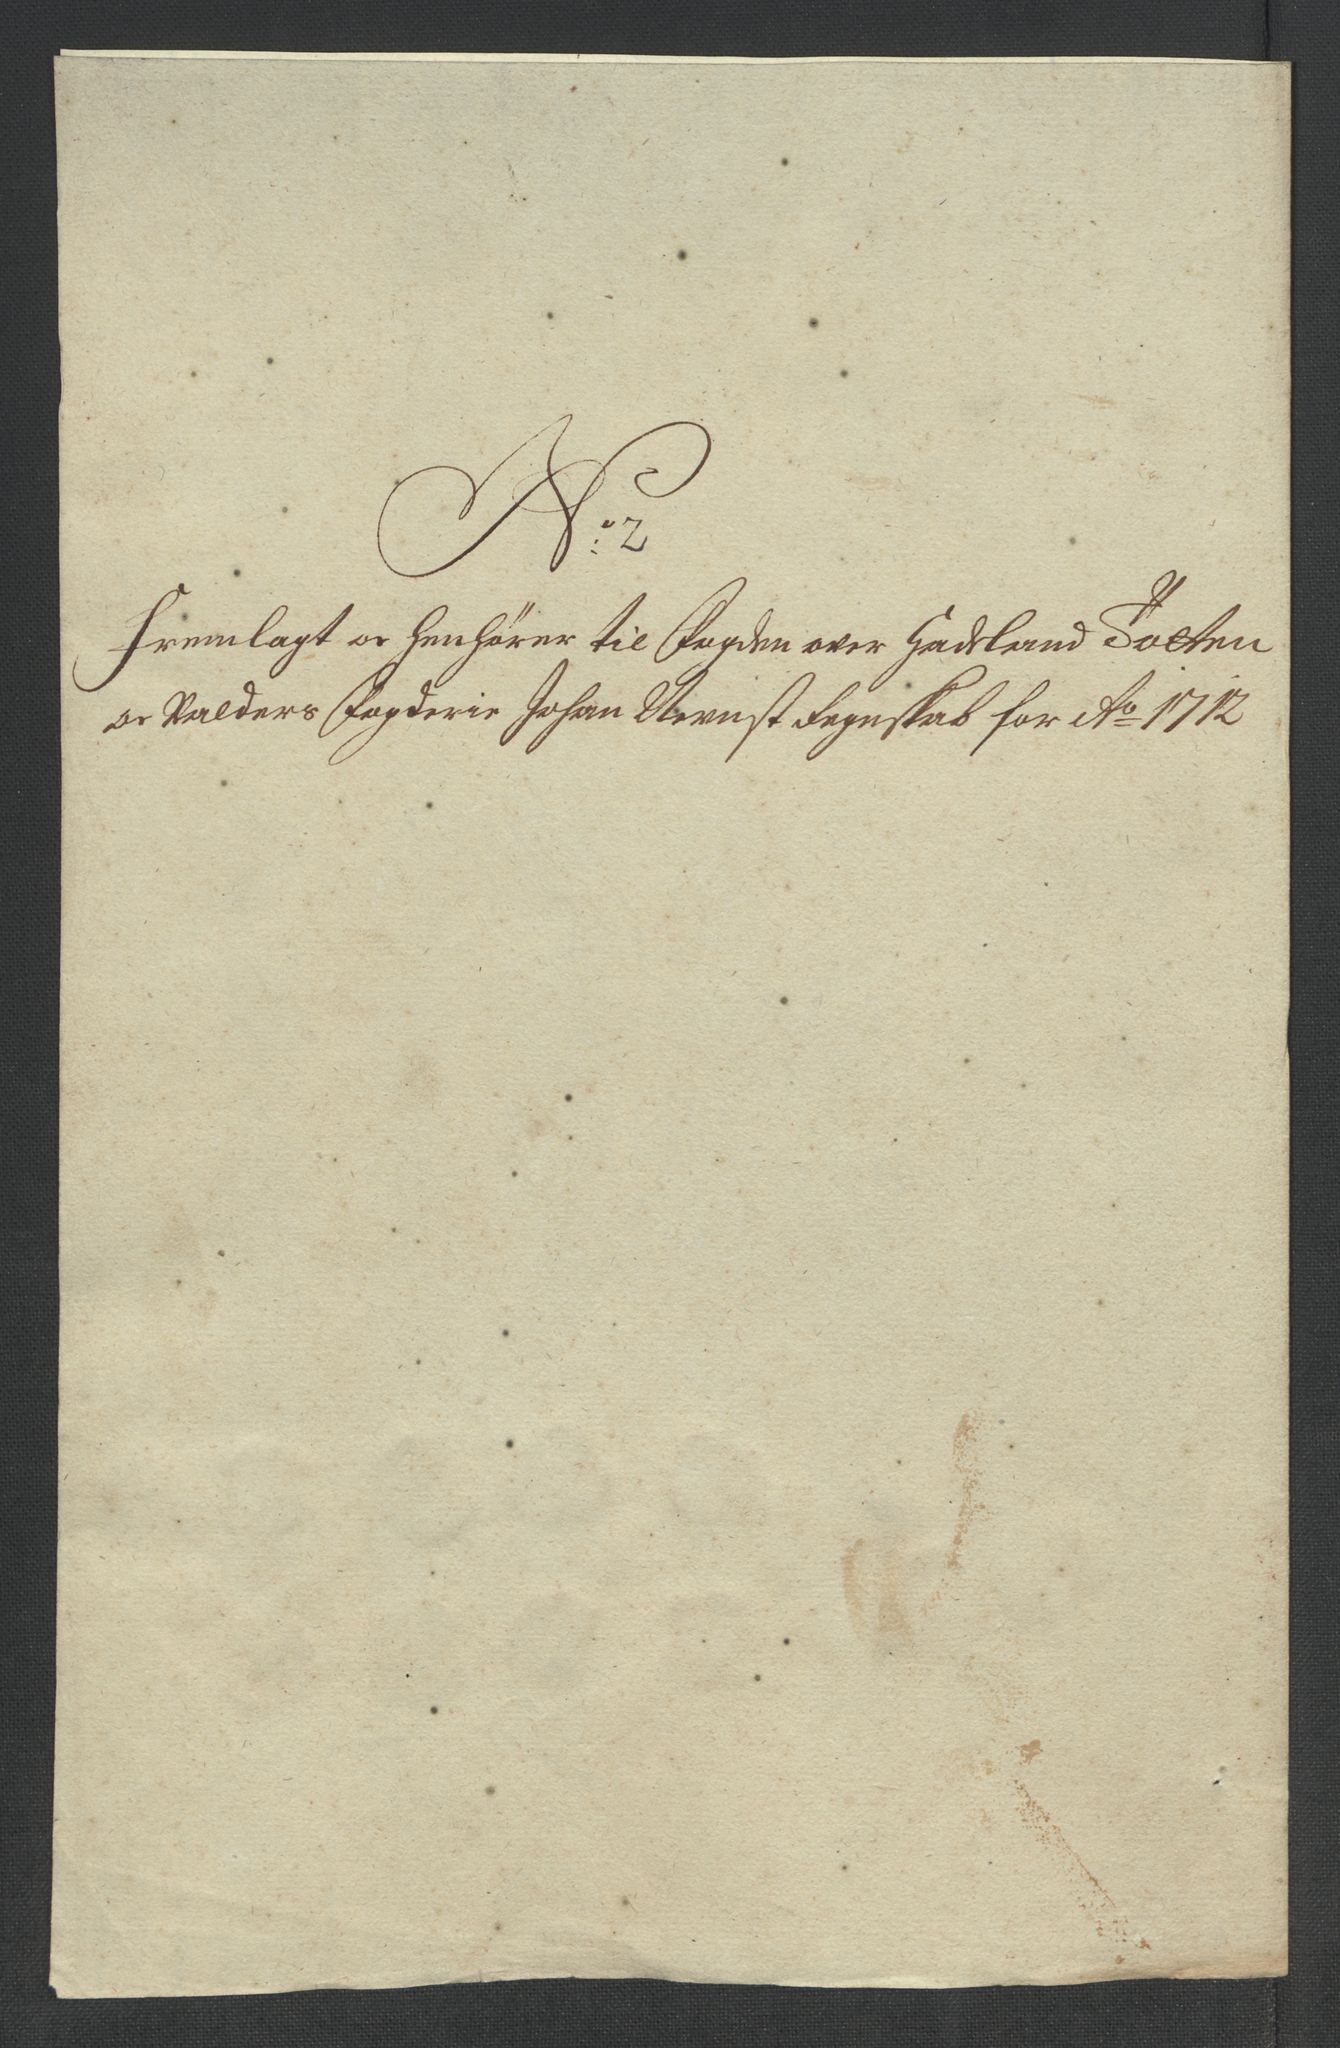 No: 2
Fremlagt oc henhörer til Fogden over Hadeland Totten
oc Valders Fogderie Johan Regnskab for Ao 1712